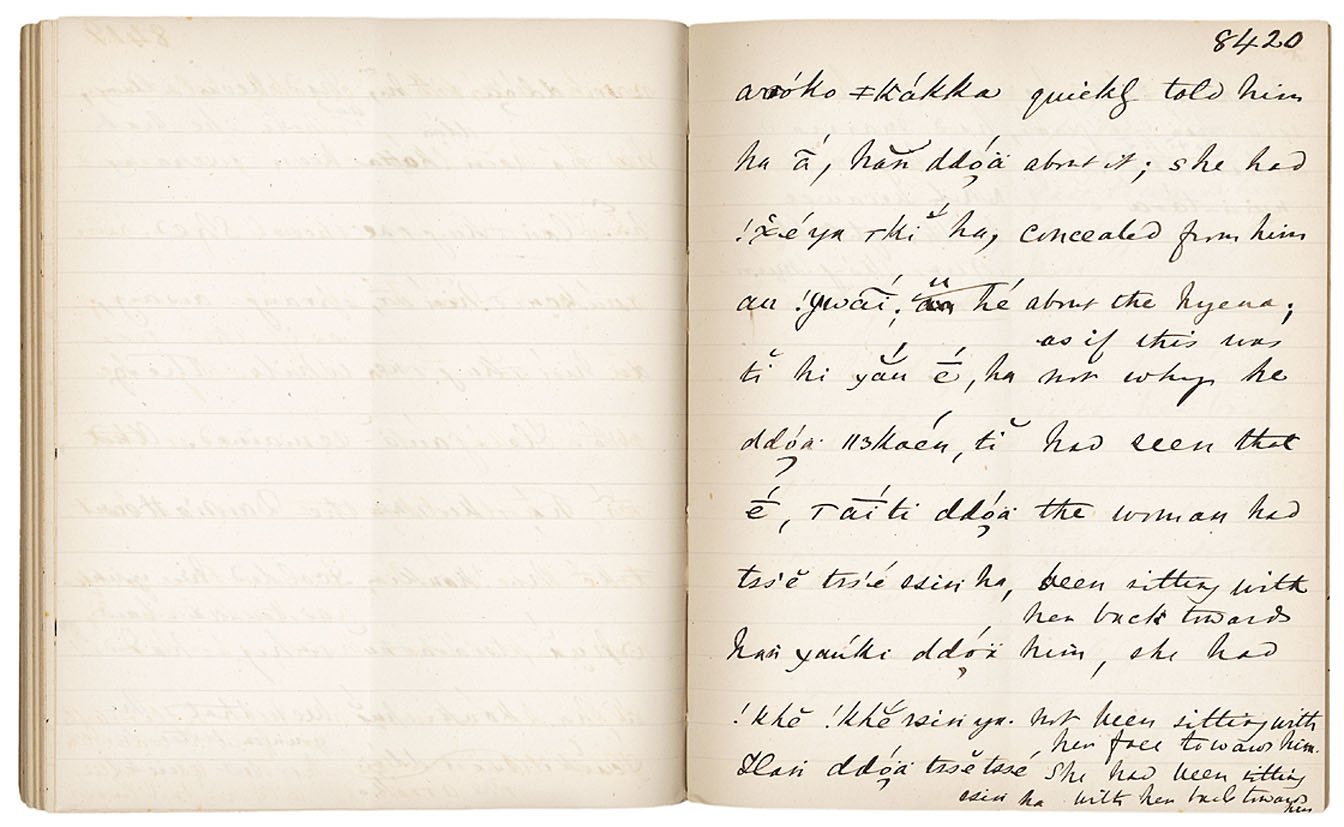 8420
arróko ǂkákka quickly told him
ha ā, hăn ddóä about it; she had
!x̌é ya ┬kĭ ha, concealed from him
au !gwāí; hé about the hyena;
as if this was
tĭ hi yắu é̄, ha not why he
ddóa ǁ3kaén, tĭ had seen that
é̄, ┬āíti ddóä the woman had
tssĕ tssé ssin ha, been sitting with
her back towards
han yaúki ddóä him, she had
!khĕ !khĕ ssin ya. not been sitting with
her face towards him.
Han ddóä tssĕ tssé She had been sitting
ssin ha with her back towards
him